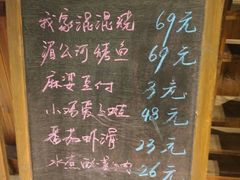 我家混混烧 69元
湄公河烤鱼 69元
麻婆豆付 3元
小鸡 48元
番茄虾滑 23元
水煮 26元